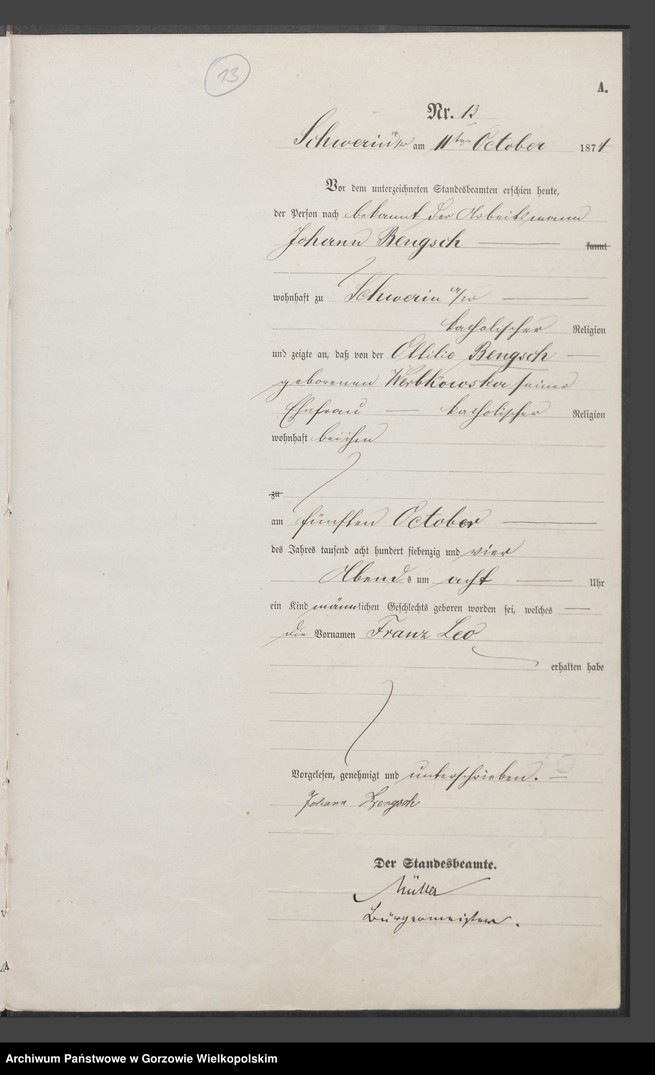 13
A.
Nr. 13
Schwerin a/W am 11ten October 1874
Vor dem unterzeichneten Standesbeamten erschien heute,
der Person nach bekannt der Arbeitsmann
Johann Bengsch kannt
wohnhaft zu Schwerin a/W
katholischer Religion
und zeigte an, daß von der Ottilie Bengsch
geborenen seiner
Ehefrau katholischer Religion
wohnhaft bei ihm
zu
am fünften October
des Jahres tausend acht hundert siebenzig und vier
Abends um acht Uhr
ein Kind männlichen Geschlechts geboren worden sei, welches
die Vornamen Franz Leo
erhalten habe
Vorgelesen, genehmigt und unterschrieben.
Johann Bengsch
Der Standesbeamte.
Müller
Bürgermeister.
A
Archiwum Państwowe w Gorzowie Wielkopolskim